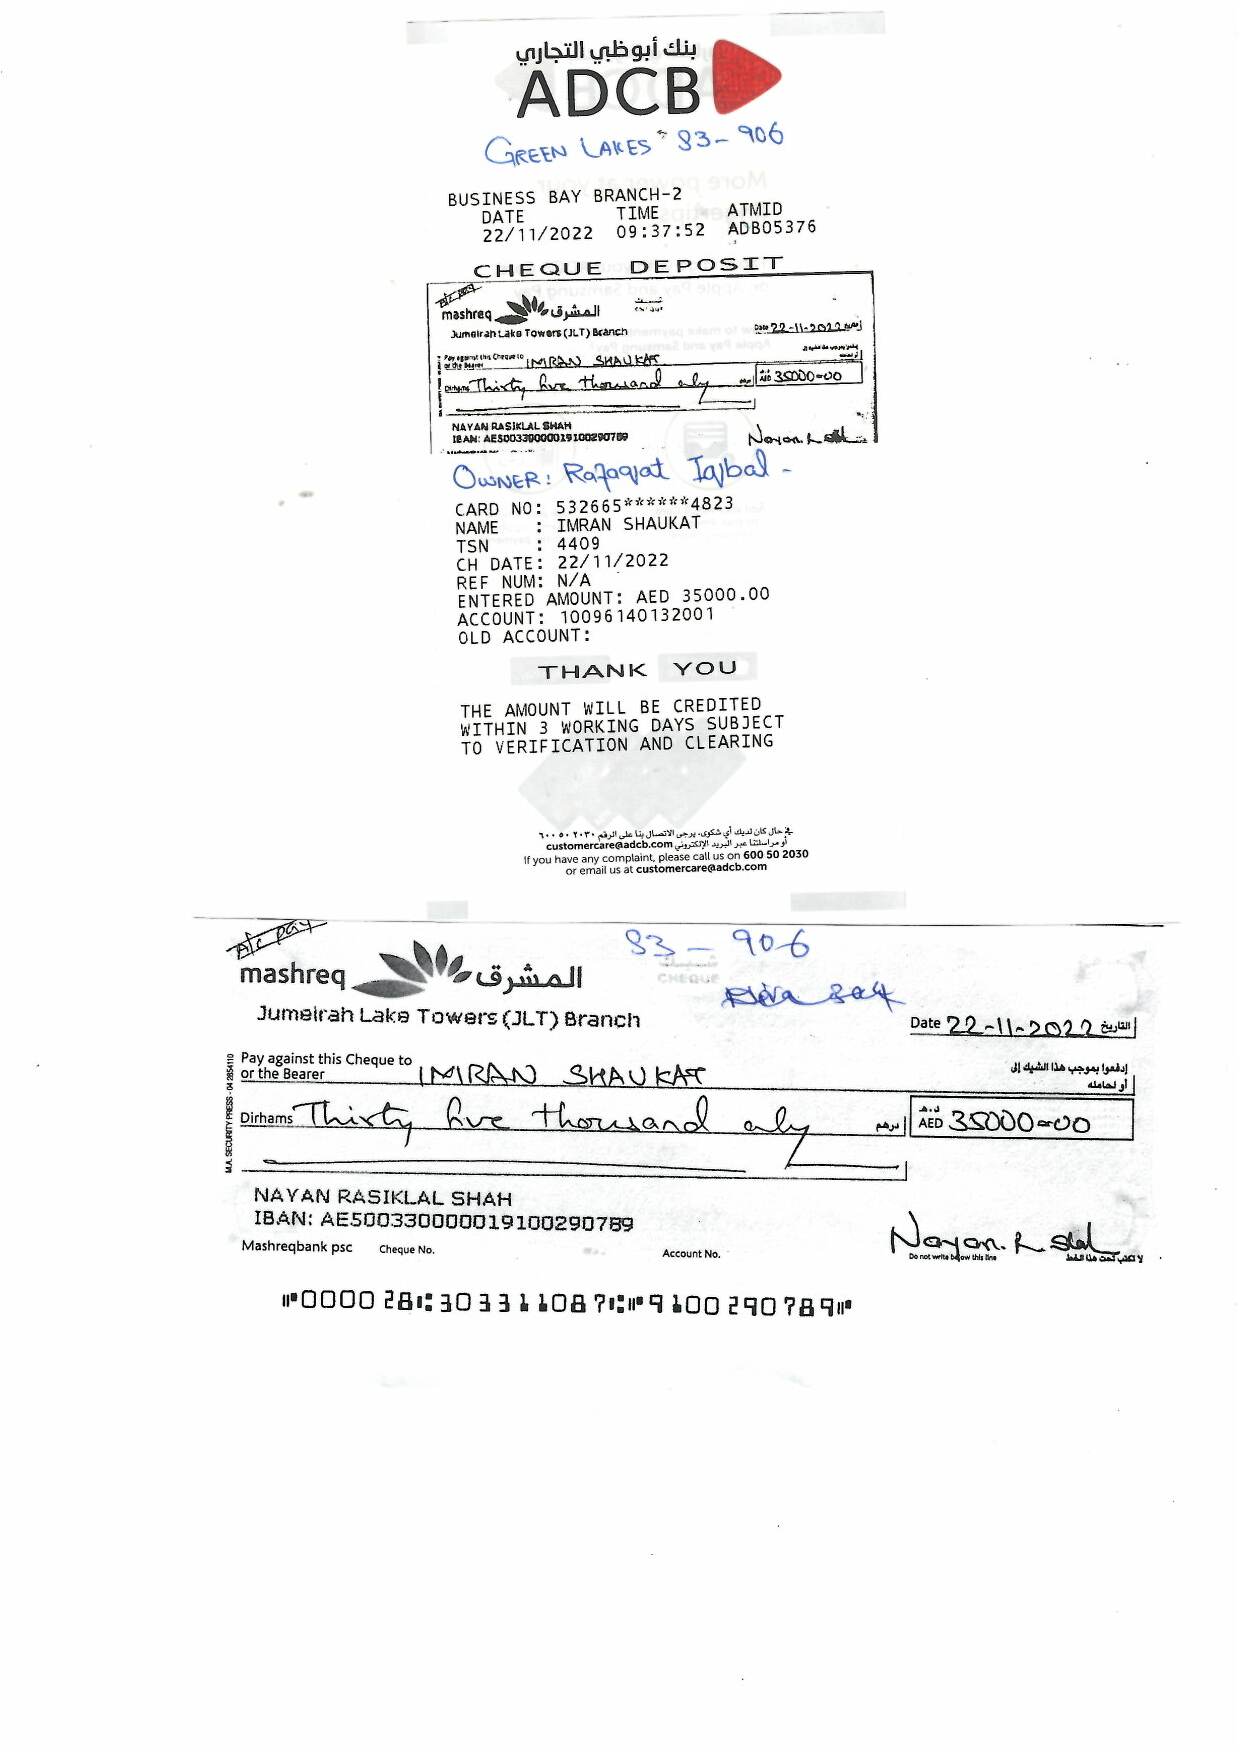 بنك أبوظبي التجاري
ADCB
GREEN LAKES S3-906
BUSINESS BAY BRANCH-2
DATE TIME ATMID
22/11/2022 09:37:52 ADB05376
CHEQUE DEPOSIT
A/C pay
mashreq المشرق
Jumeirah Lake Towers (JLT) Branch
Date 22-11-2022 التاريخ
Pay against this Cheque to
or the Bearer IMRAN SHAUKAT
Dirhams Thirty five thousand only درهم AED 35000-00
NAYAN RASIKLAL SHAH
IBAN: AE500330000019100290789
Nayan. R. Shah
OWNER: Rafaqat Iqbal -
CARD NO: 532665******4823
NAME : IMRAN SHAUKAT
TSN : 4409
CH DATE: 22/11/2022
REF NUM: N/A
ENTERED AMOUNT: AED 35000.00
ACCOUNT: 10096140132001
OLD ACCOUNT:
THANK YOU
THE AMOUNT WILL BE CREDITED
WITHIN 3 WORKING DAYS SUBJECT
TO VERIFICATION AND CLEARING
في حال كان لديك أي شكوى، يرجى الاتصال بنا على الرقم ٦٠٠ ٥٠ ٢٠٣٠
أو مراسلتنا عبر البريد الإلكتروني customercare@adcb.com
If you have any complaint, please call us on 600 50 2030
or email us at customercare@adcb.com
A/C pay
S3 - 906
mashreq المشرق
شيك
CHEQUE
Jumeirah Lake Towers (JLT) Branch
Date 22-11-2022 التاريخ
Pay against this Cheque to
or the Bearer IMRAN SHAUKAT
إدفعوا بموجب هذا الشيك إلى
أو لحامله
Dirhams Thirty five thousand only درهم
د.هـ
AED 35000-00
M.A. SECURITY PRESS - 04 2854110
NAYAN RASIKLAL SHAH
IBAN: AE500330000019100290789
Mashreqbank psc Cheque No. Account No.
Nayan. R. Shah
Do not write below this line لا تكتب تحت هذا الخط
⑈000028⑆303311087⑆⑈9100290789⑈